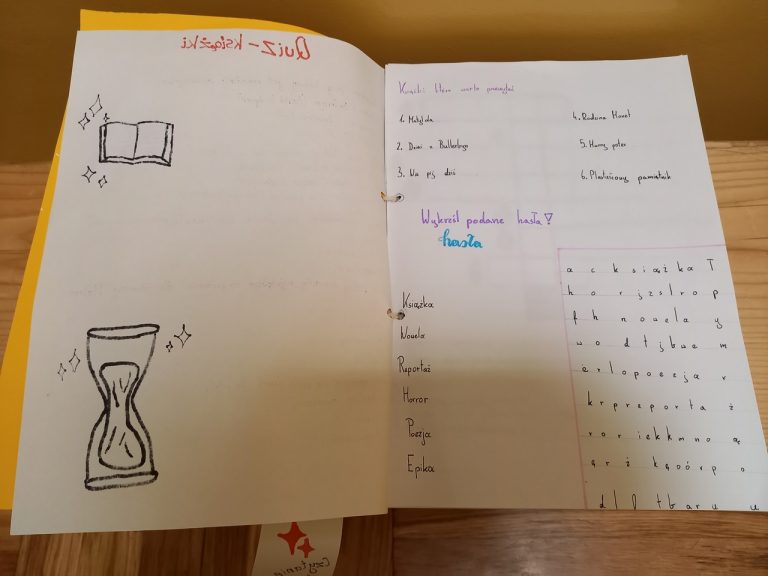 Quiz - książki
Książki które warto przeczytać
1. Matylda
2. Dzieci z Bullerbyn
3. Na pij dziś
4. Rodzina Monet
5. Harry poter
6. Plastusiowy pamiętnik
Wykreśl podane hasła!
hasła
Książka
Nowela
Reportaż
Horror
Poezja
Epika
a c k s i ą ż k a T
h o r j z s l r o p
f h n o w e l a y
w o d t j b w e m
e r l o p o e z j a r
k r p r e p o r t a ż
r o r i e k k m n o ą
ę r ż k ą o ó r p o
d l t b a r u u
Czytania